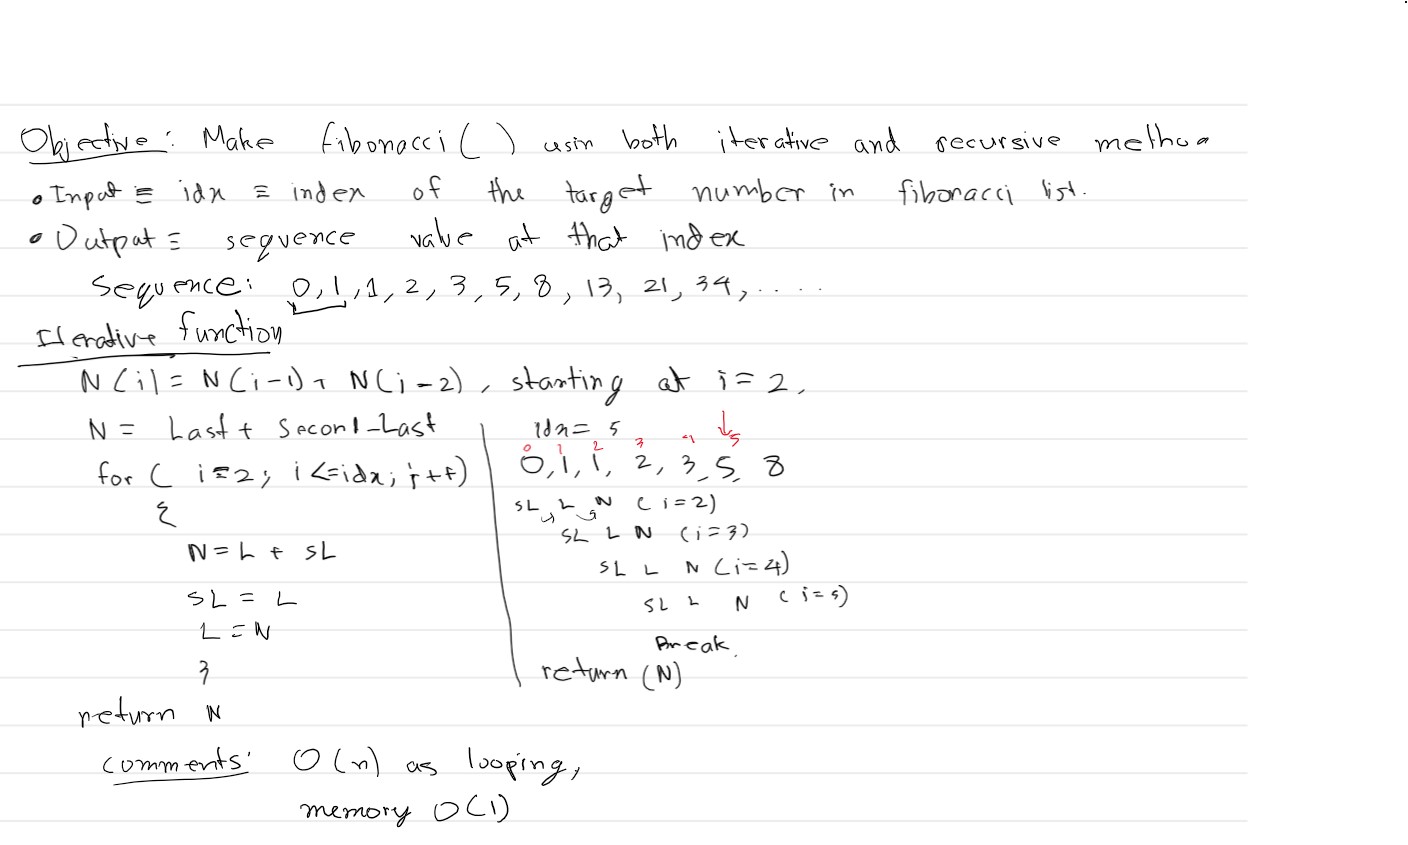 Objective: Make fibonacci ( ) usin both iterative and recursive metho
• Input ≡ idx ≡ index of the target number in fibonacci list.
• Output ≡ sequence value at that index
Sequence: 0, 1, 1, 2, 3, 5, 8, 13, 21, 34, ....
Iterative function
N(i) = N(i-1) + N(i-2), starting at i = 2,
N = Last + Second-Last
for ( i=2; i<=idx; i++)
{
N = L + SL
SL = L
L = N
}
return N
idx = 5
0 1 2 3 4 5
0, 1, 1, 2, 3, 5, 8
SL L N (i=2)
SL L N (i=3)
SL L N (i=4)
SL L N (i=5)
Break.
return (N)
comments: O(n) as looping,
memory O(1)